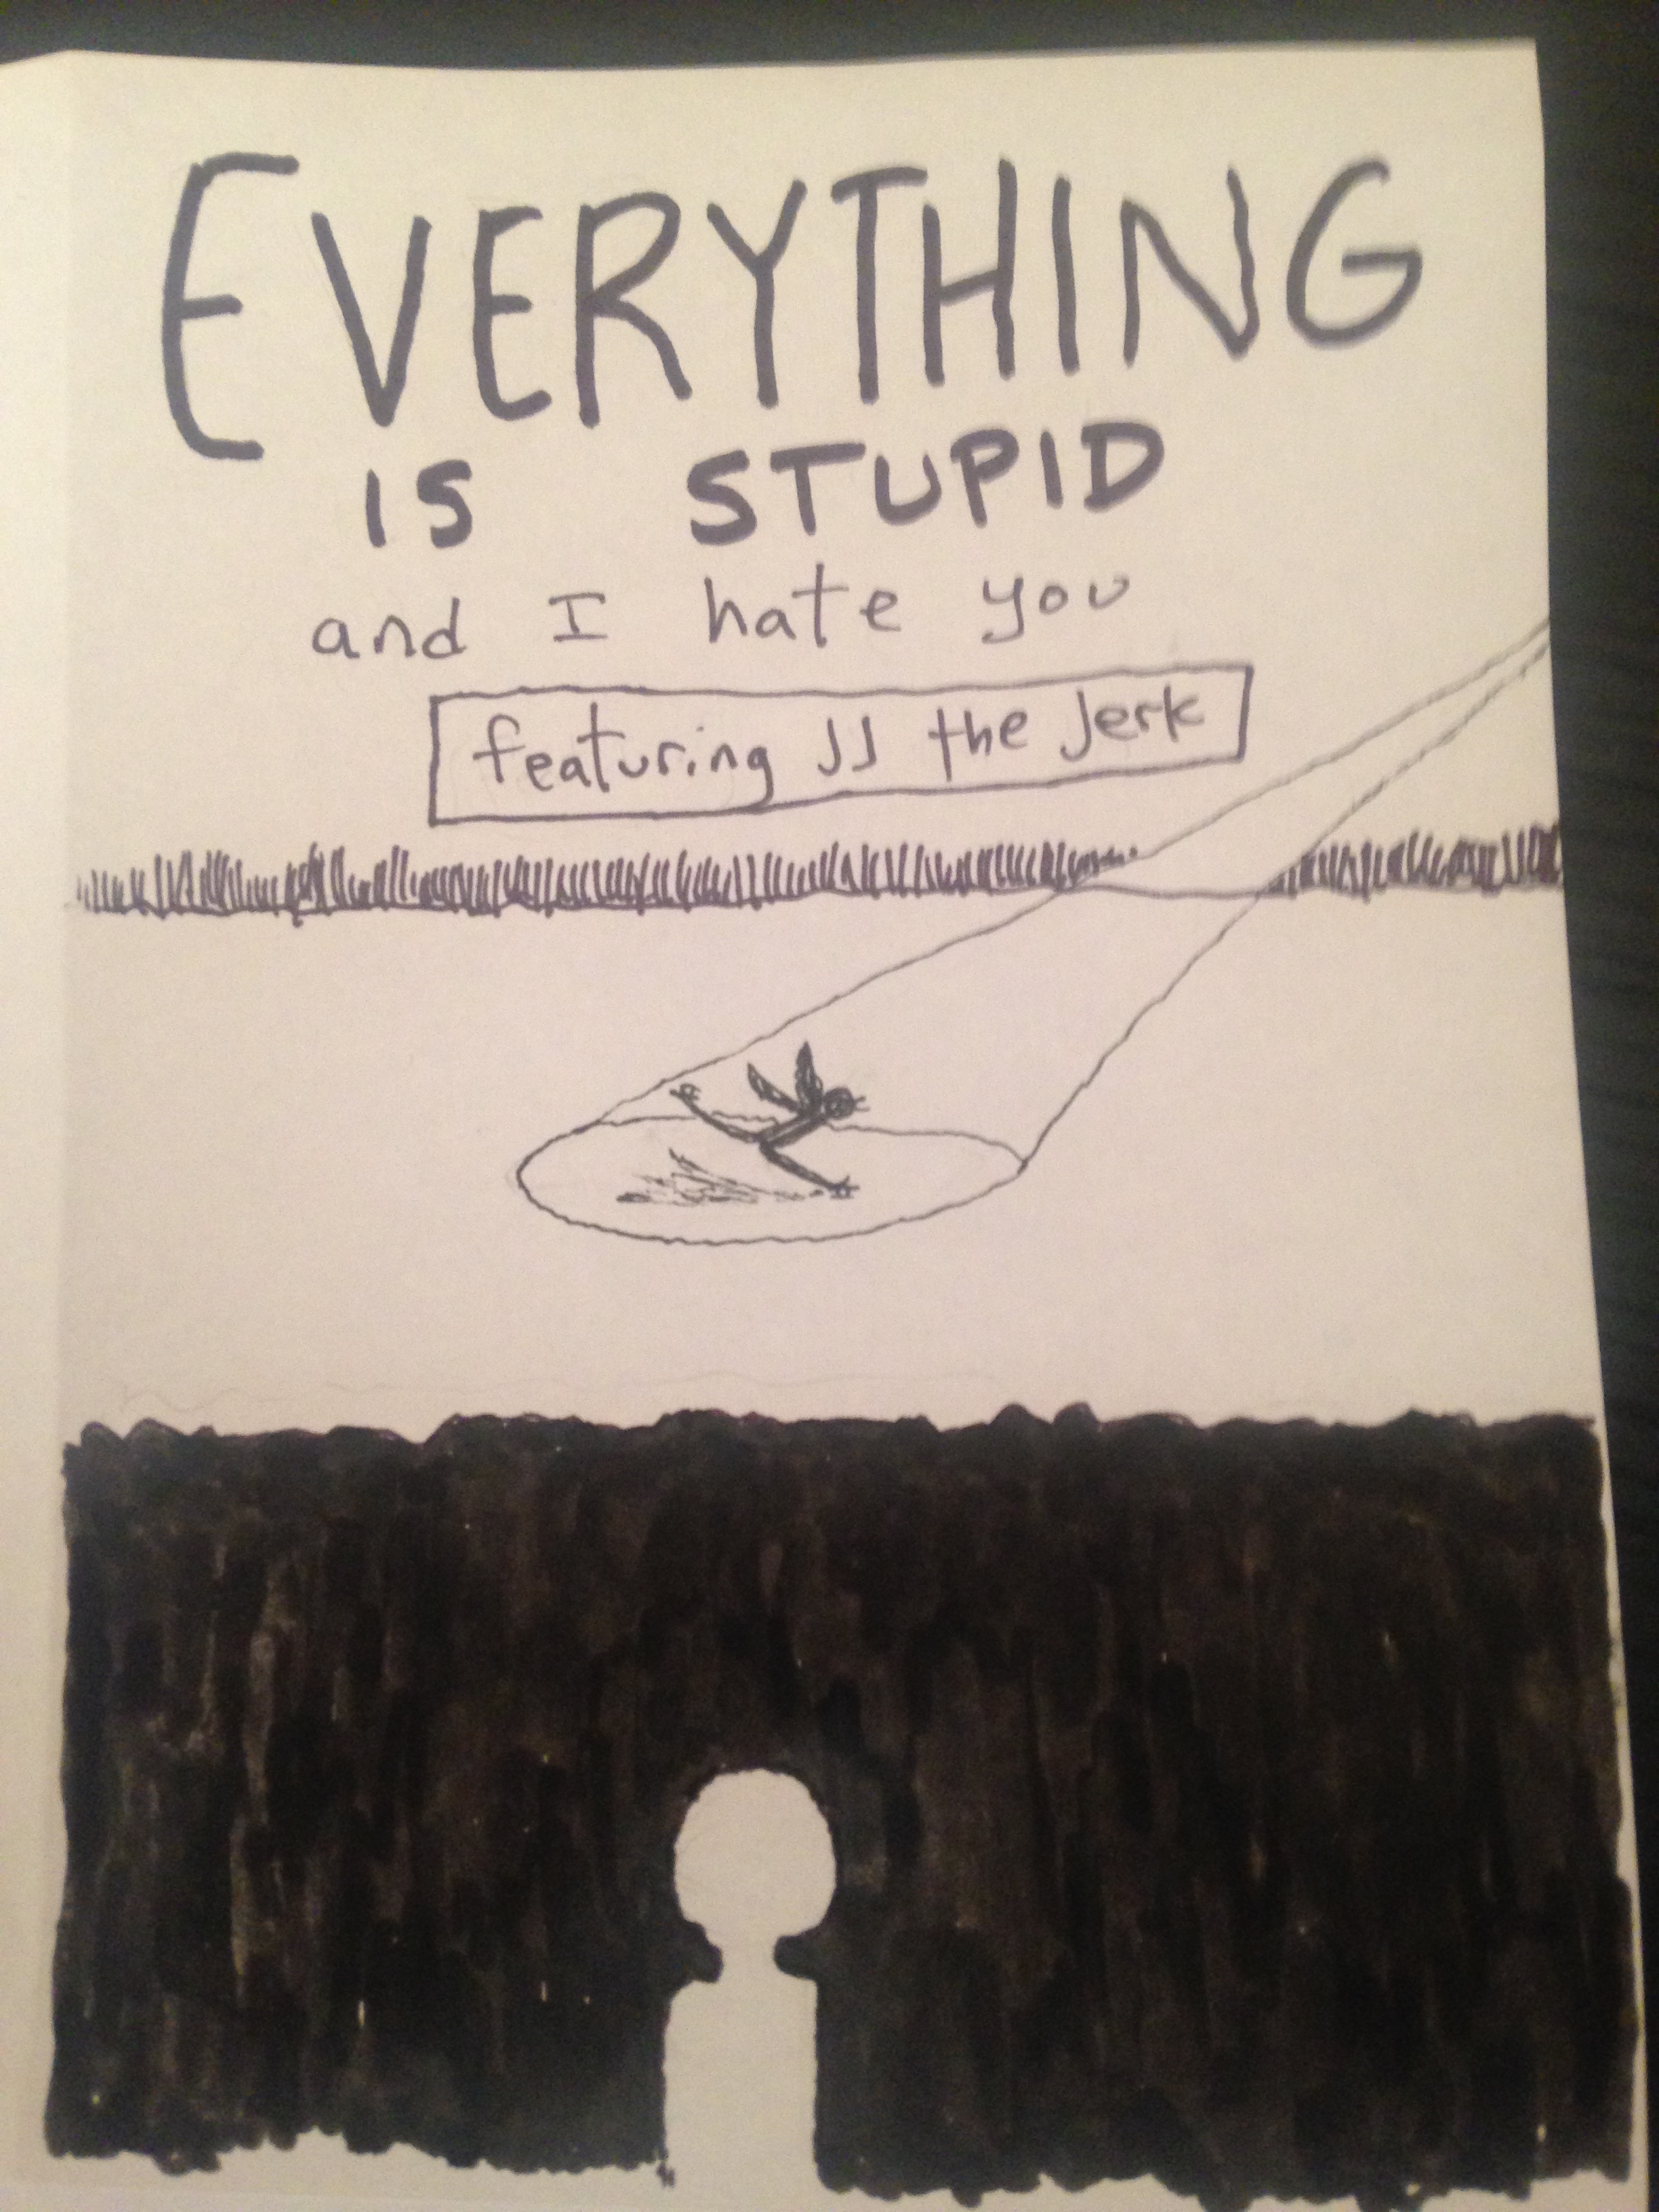 EVERYTHING
IS STUPID
and I hate you
featuring JJ the Jerk